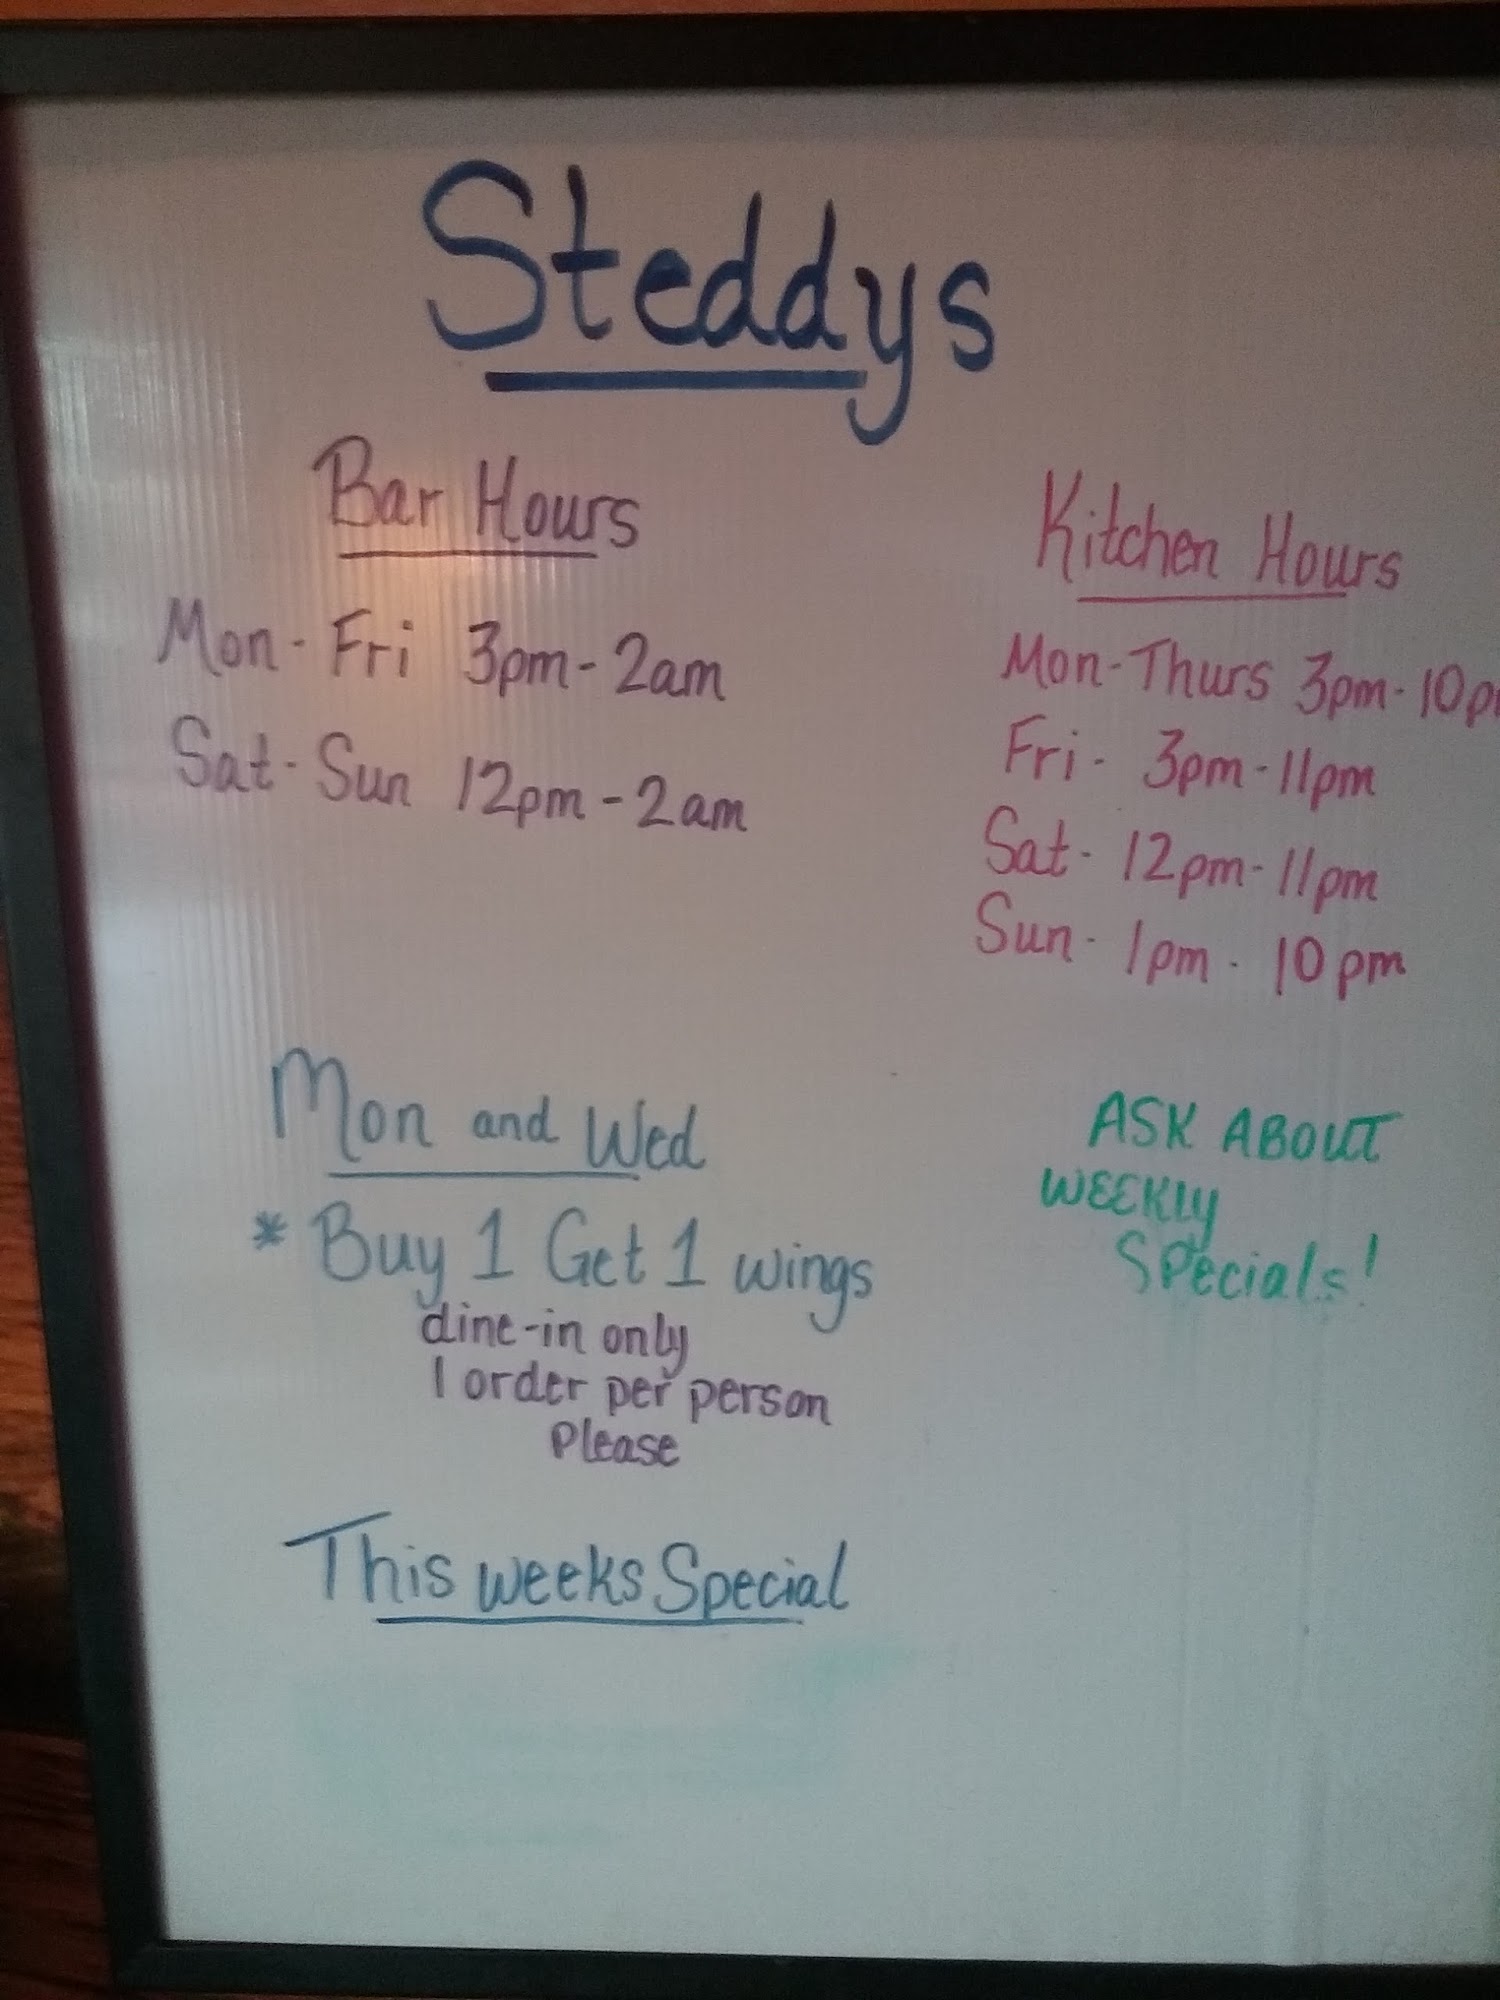 Steddys
Bar Hours
Mon-Fri 3pm-2am
Sat-Sun 12pm-2am
Kitchen Hours
Mon-Thurs 3pm-10p
Fri- 3pm-11pm
Sat- 12pm-11pm
Sun- 1pm- 10pm
Mon and Wed
* Buy 1 Get 1 wings
dine-in only
1 order per person
Please
ASK ABOUT
WEEKLY
SPecials!
This weeks Special